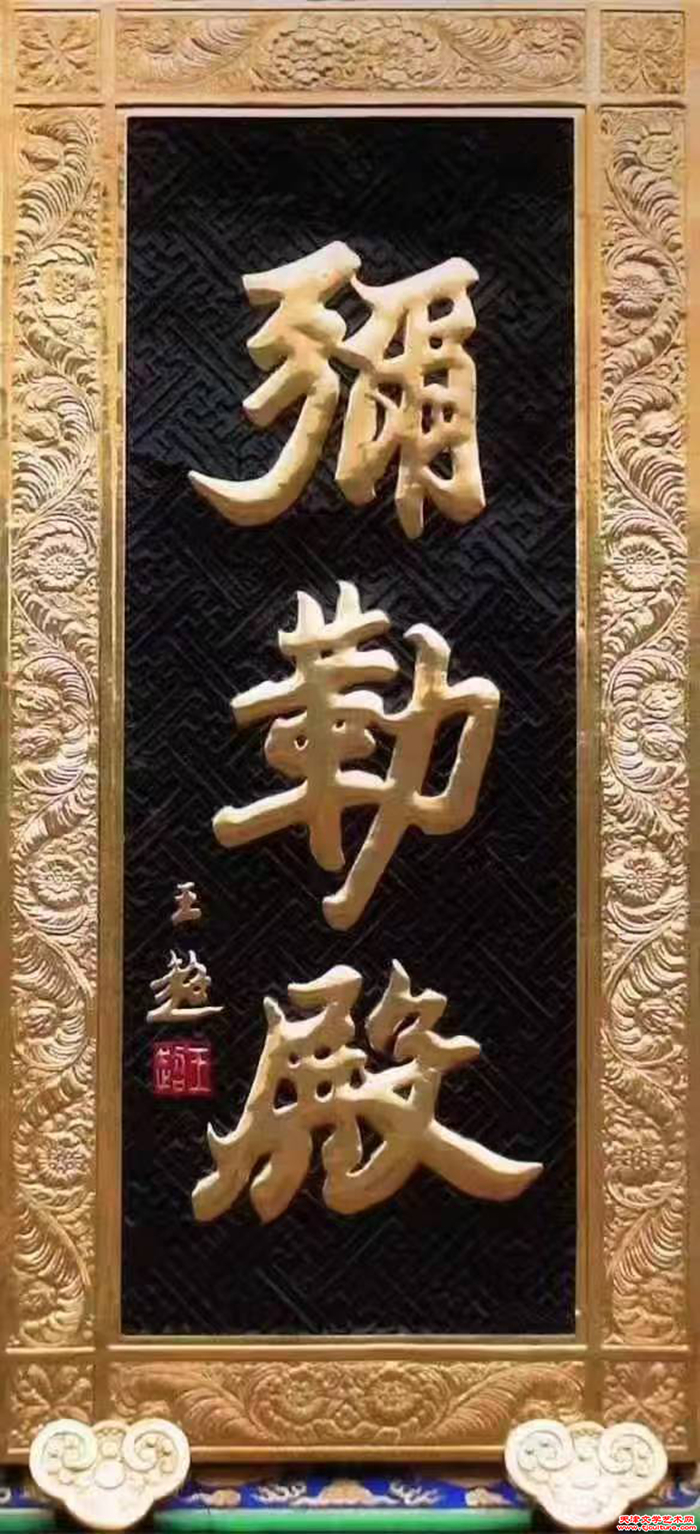 彌勒殿
王超
王超
天津文学艺术网